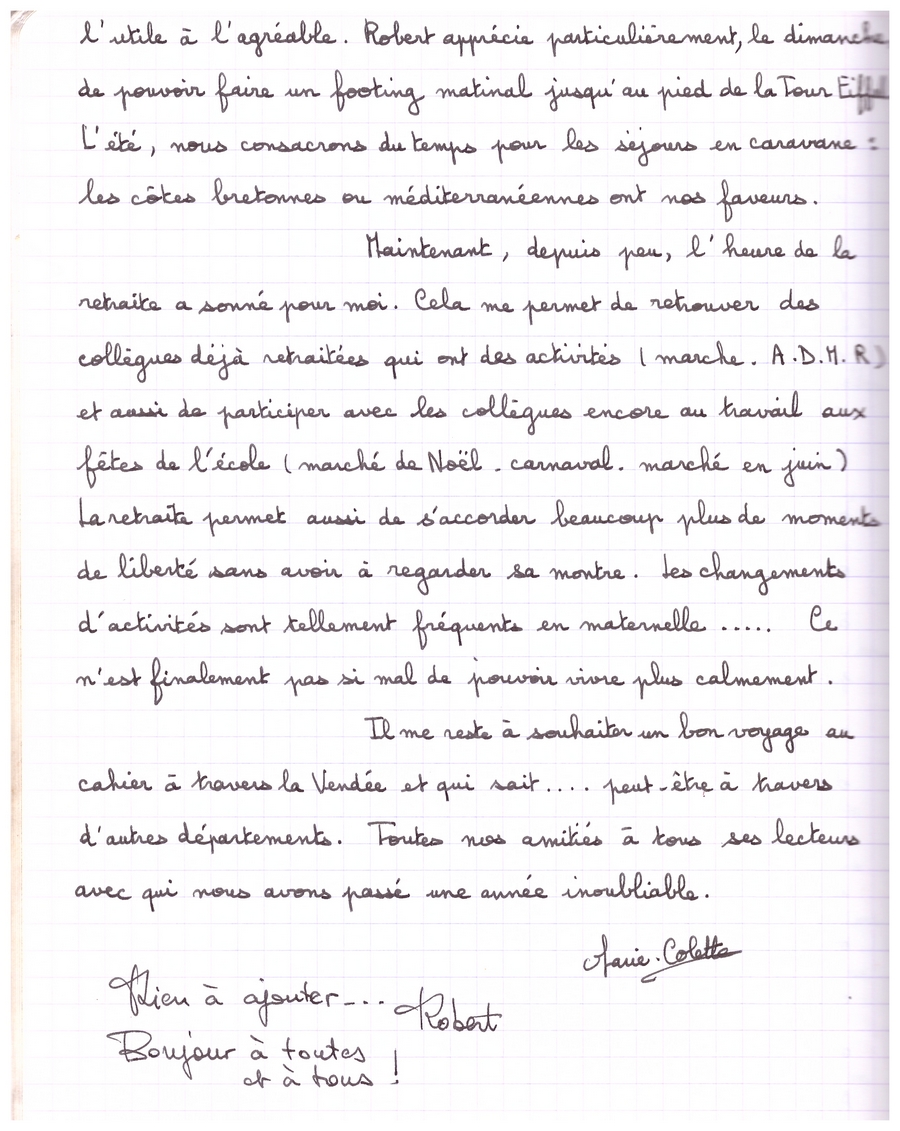 l'utile à l'agréable. Robert apprécie particulièrement, le dimanche
de pouvoir faire un footing matinal jusqu'au pied de la Tour Eiffel
L'été, nous consacrons du temps pour les séjours en caravane :
les côtes bretonnes ou méditerranéennes ont nos faveurs.
Maintenant, depuis peu, l'heure de la
retraite a sonné pour moi. Cela me permet de retrouver des
collègues déjà retraitées qui ont des activités (marche. A.D.M.R)
et aussi de participer avec les collègues encore au travail aux
fêtes de l'école (marché de Noël. carnaval. marché en juin)
La retraite permet aussi de s'accorder beaucoup plus de moments
de liberté sans avoir à regarder sa montre. Les changements
d'activités sont tellement fréquents en maternelle ..... Ce
n'est finalement pas si mal de pouvoir vivre plus calmement.
Il me reste à souhaiter un bon voyage au
cahier à travers la Vendée et qui sait .... peut-être à travers
d'autres départements. Toutes nos amitiés à tous ses lecteurs
avec qui nous avons passé une année inoubliable.
Marie.Colette
Rien à ajouter _...
Robert
Bonjour à toutes
et à tous !